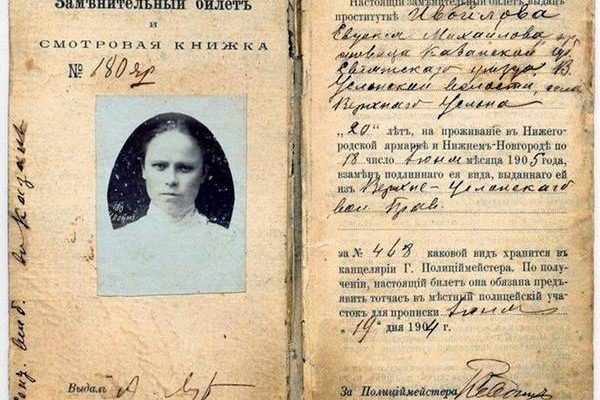 Замѣнительный билетъ
и
СМОТРОВАЯ КНИЖКА
№ 180 яр
Выдалъ
Настоящій замѣнительный билетъ выданъ
проституткѣ
Евгенія Михайлова
Казанской
уѣзда
волости, села
Верхняго Услона
„20" лѣтъ, на проживаніе въ Нижего-
родской армаркѣ и Нижнемъ-Новгородѣ по
18 число Іюня мѣсяца 1905 года,
взамѣнъ подлиннаго ея вида, выданнаго ей
изъ Верхне-Услонскаго
вол Прав.
за № 468 каковой видъ хранится въ
канцеляріи Г. Полиціймейстера. По полу-
ченіи, настоящій билетъ она обязана предъ-
явить тотчасъ въ мѣстный полицейскій уча-
стокъ для прописки Іюня
„19" дня 1904 г.
За Полиціймейстера